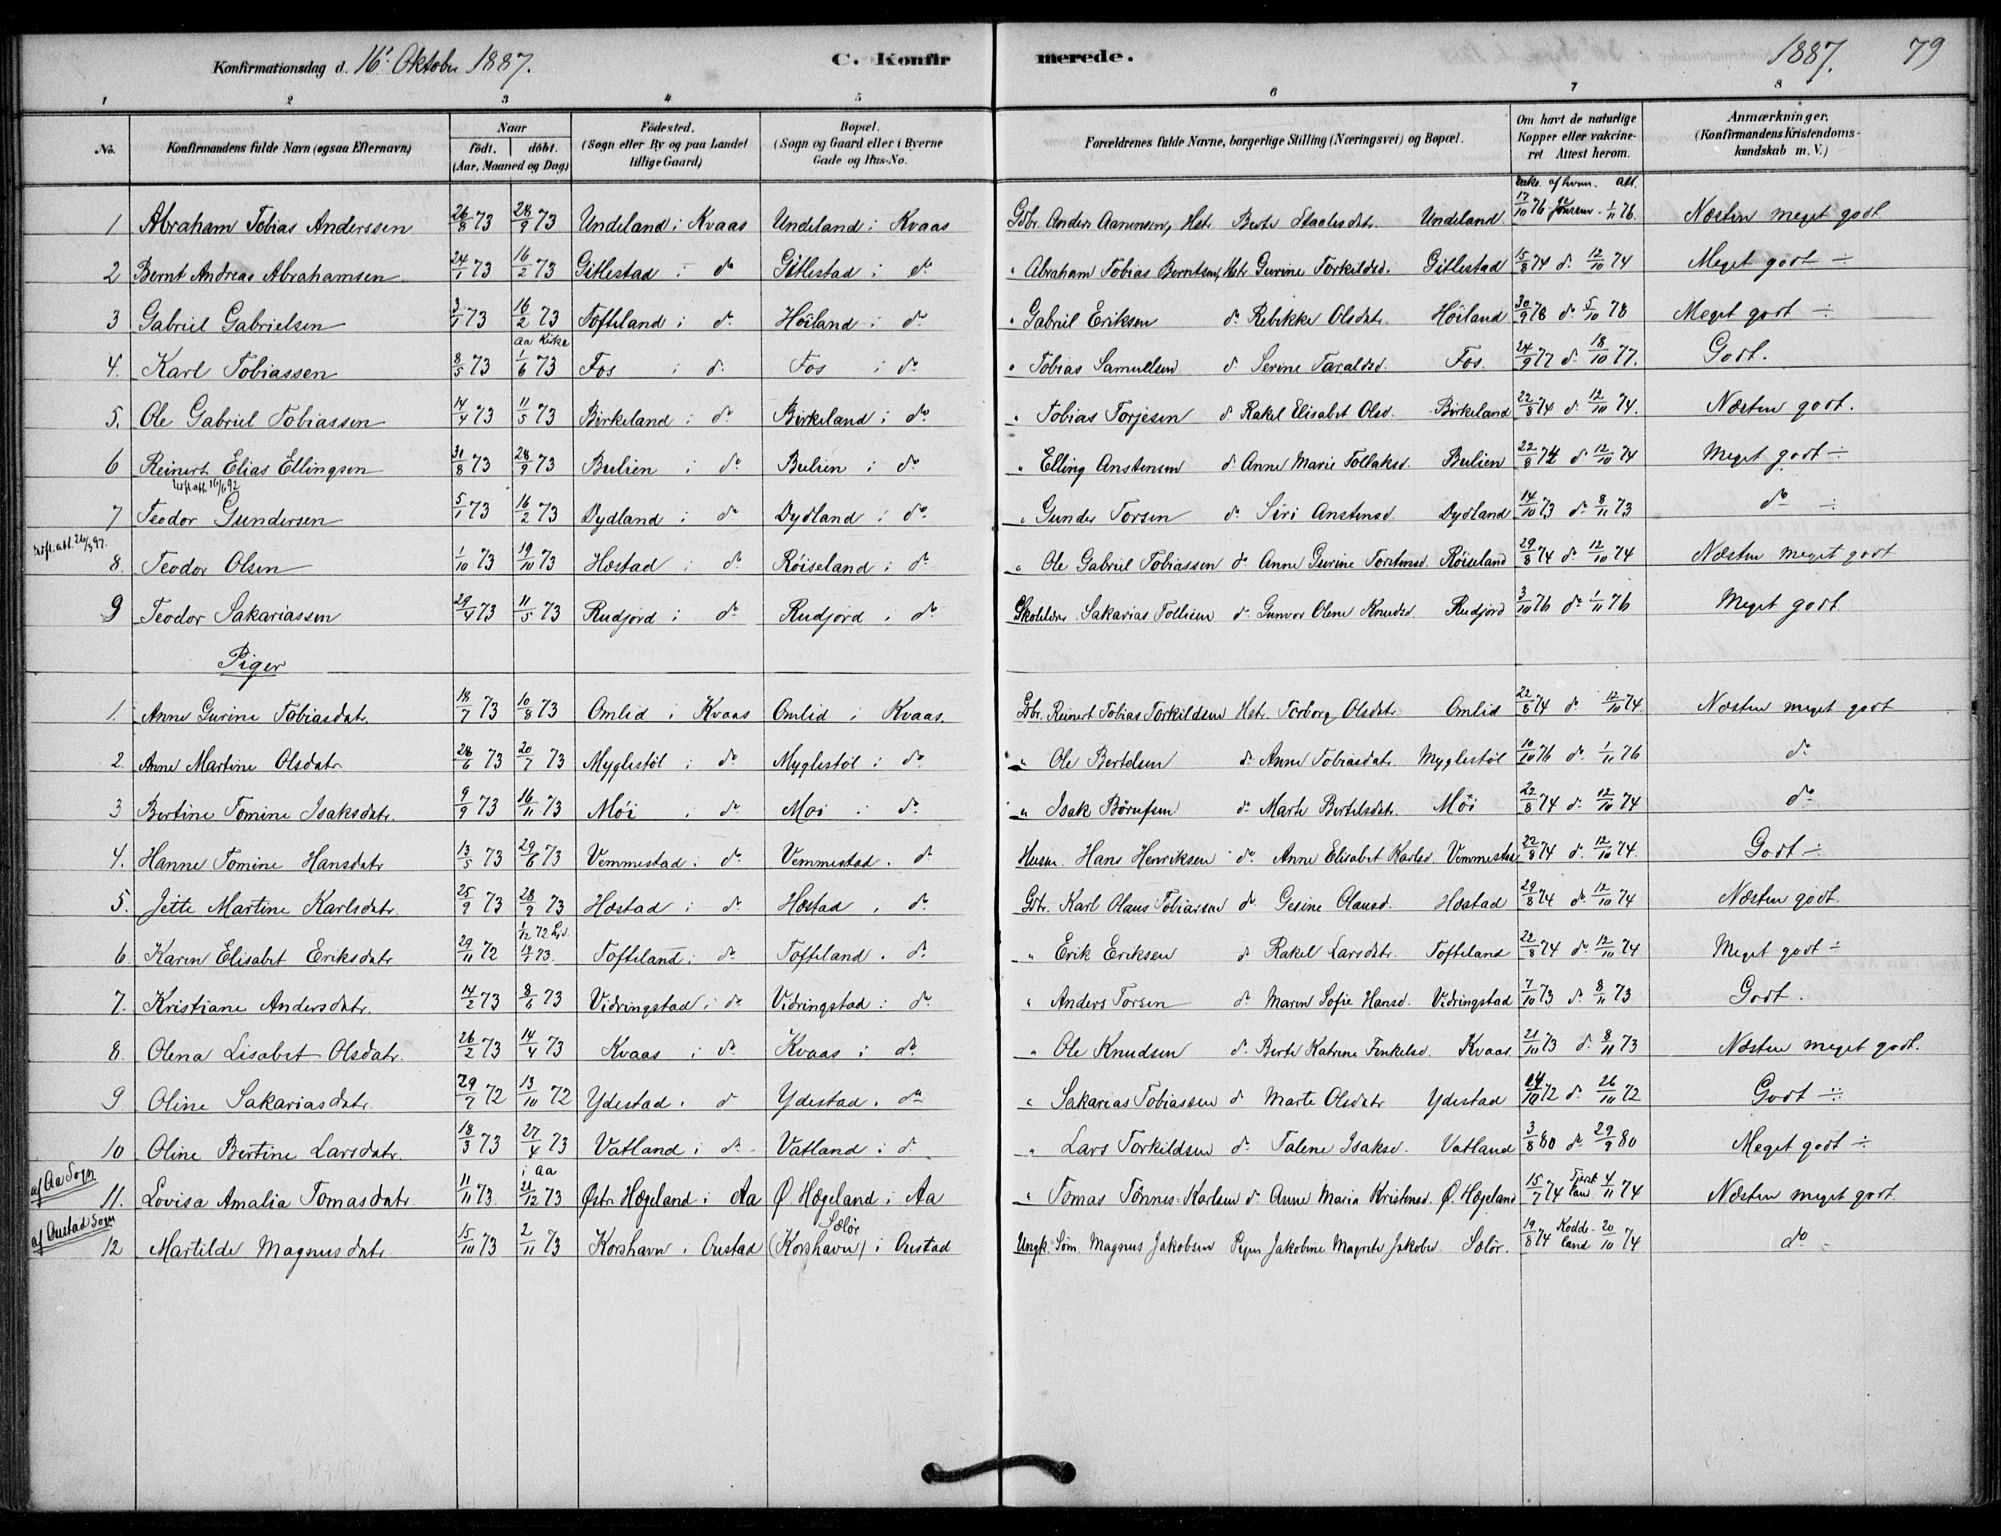 Konfirmationsdag d. 16' Oktober 1887. C. Konfirmerede. 1887. 79
1 2 3 4 5 6 7 8
No. Konfirmandens fulde Navn (ogsaa Efternavn) Naar födt. döbt. (Aar, Maaned og Dag) Födested. (Sogn eller By og paa Landet tillige Gaard) Bopæl. (Sogn og Gaard eller i Byerne Gade og Hus-No. Forældrenes fulde Navne, borgerlige Stilling (Næringsvei) og Bopæl. Om havt de naturlige Kopper eller vakcineret Attest herom. Anmærkninger. (Konfirmandens Kristendomskundskab m. V.)
vaks. af hvem. att.
1 Abraham Tobias Anderssen 26/8 73 28/9 73 Undeland i Kvaas Undeland i Kvaas Gbr. Anders Aanensen, Hstr Berte Staalesdatr. Undeland. 17/10 76 1/11 76. Næsten meget godt
2 Bernt Andreas Abrahamsen 24/1 73 16/2 73 Gitlestad i do Gitlestad i do " Abraham Tobias Berntsen, Hstr Gurine Torkildsd. Gitlestad 15/8 74 do 12/10 74 Meget godt ÷
3 Gabriel Gabrielsen 3/1 73 16/2 73 Tofteland i do Höiland i do " Gabriel Eriksen do Rebikke Olsdatr. Höiland 30/9 78 do 5/10 78 Meget godt ÷
Aa Kirke
4. Karl Tobiassen 8/5 73 1/6 73 Fos i do Fos i do " Tobias Samuelsen do Serine Taraldsd. Fos. 24/9 77 do 18/10 77. Godt.
5. Ole Gabriel Tobiassen 14/4 73 11/5 73 Birkeland i do Birkeland i do " Tobias Torjesen do Rakel Elisabet Olsd. Birkeland 22/8 74 do 12/10 74. Næsten godt.
6 Reinert Elias Ellingsen 31/8 73 28/9 73 Bulien i do Bulien i do " Elling Anstensen do Anne Marie Tollaksd. Bulien 22/8 74 do 12/10 74 Meget godt ÷
7 Teodor Gundersen 5/1 73 16/2 73 Dydland i do Dydland i do " Gunder Torsen do Siri Anstensd. Dydland 14/10 73 do 8/11 73 do ÷
8. Teodor Olsen 1/10 73 19/10 73 Hæstad i do Röiseland i do " Ole Gabriel Tobiassen do Anne Gurine Torstensd. Röiseland 29/8 74 do 12/10 74 Næsten meget godt
9 Teodor Sakariassen 29/4 73 11/5 73 Rudjord i do Rudjord i do Sakarias Tollisen do Gunvor Olene Knudsd. Rudjord 3/10 76 do 1/11 76 Meget godt
Piger
1. Anne Gurine Tobiasdatr. 18/7 73 10/8 73 Omlid i Kvaas Omlid i Kvaas. Gbr. Reinert Tobias Torkildsen Hstr. Torborg Olsdatr Omlid 22/8 74 do 12/10 74. Næsten meget godt
2. Anne Martine Olsdatr 28/6 73 20/7 73 Myglestöl i do Myglestöl i do " Ole Bertelsen do Anne Tobiasdatr Myglestöl 10/10 76 do 1/11 76 do
3 Bertine Tomine Isaksdatr. 9/9 73 16/11 73 Möi i do Moi i do " Isak Börufsen do Marte Bertelsdatr. Möi 22/8 74 do 12/10 74 do
4. Hanne Tomine Hansdatr 13/5 73 29/6 73 Vemmestad i do Vemmestad i do Husm. Hans Henriksen do Anne Elisabet Karlsd. Vemmestad 22/8 74 do 12/10 74. Godt ÷
5. Jette Martine Karlsdatr. 25/9 73 28/9 73 Hæstad i do Hæstad i do Gbr. Karl Olaus Tobiassen do Gesine Olausd. Hæstad 29/8 74 do 12/10 74 Næsten godt.
1/12 72
6. Karen Elisabet Eriksdatr 29/11 72 19/1 73. Tofteland i do Tofteland i do " Erik Eriksen do Rakel Larsdatr. Tofteland 22/8 74 do 12/10 74 Meget godt ÷
7. Kristiane Andersdatr. 14/2 73 8/6 73 Vidringstad i do Vidringstad i do " Anders Torsen do Maren Sofie Hansd. Vidringstad 7/10 73 do 8/11 73 Godt.
8. Olena Lisabet Olsdatr. 26/2 73 14/4 73 Kvaas i do Kvaas i do " Ole Knudsen do Berte Katrine Tenkelsd. Kvaas 21/10 73 do 8/11 73 Næsten meget godt.
9. Oline Sakariasdatr. 29/7 72 13/10 72 Ydestad i do Ydestad i do " Sakarias Tobiassen do Marte Olsdatr Ydestad 14/10 72 do 26/10 72 Godt ÷
10 Oline Bertine Larsdatr. 18/3 73 27/4 73 Vatland i do Vatland i do " Lars Torkildsen do Talene Isaksd. Vatland 3/8 80 do 29/9 80 Meget godt ÷
af Aa Sogn i Aa
11. Lovisa Amalia Tomasdatr 11/11 73. 21/12 73 Østr. Hægeland i Aa Ø Hægeland i Aa " Tomas Tönnes Karlsen do Anne Maria Kristensd. Ø. Hægeland 15/7 74 4/11 74 Næsten meget godt.
af Oustad Sogn Sælör
12 Martilde Magnusdatr 15/10 73 2/11 73 Korshavn i Oustad (Korshavn) i Oustad Ungk. Söm. Magnus Jakobsen Pigen Jakobine Magrete Jakobsd Sælör. 19/8 74 Koddeland 20/10 74 do